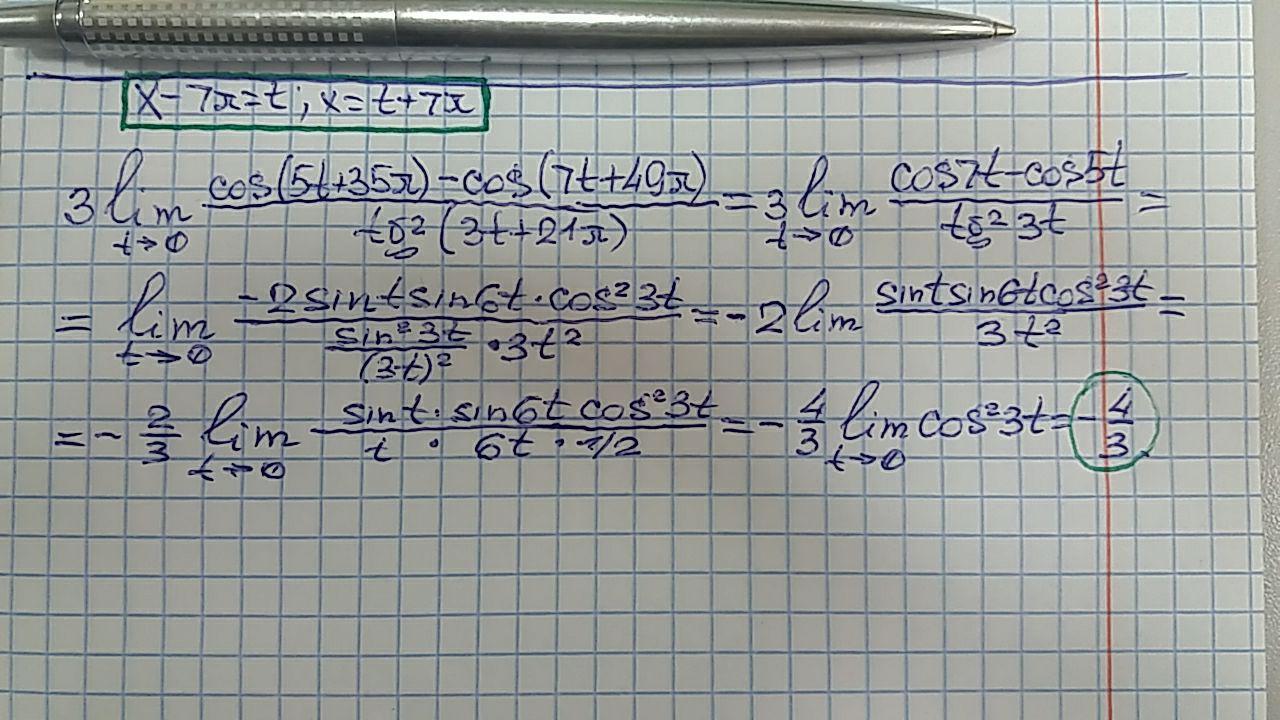 x-7π=t; x=t+7π
3 lim t→0 cos(5t+35π)-cos(7t+49π) / tg²(3t+21π) = 3 lim t→0 cos7t-cos5t / tg²3t =
= lim t→0 -2sintsin6t·cos²3t / (sin²3t/(3t)² · 3t²) = -2 lim sintsin6tcos²3t / 3t² =
= -2/3 lim t→0 sint·sin6t cos²3t / t · 6t · 1/2 = -4/3 lim t→0 cos²3t = -4/3.